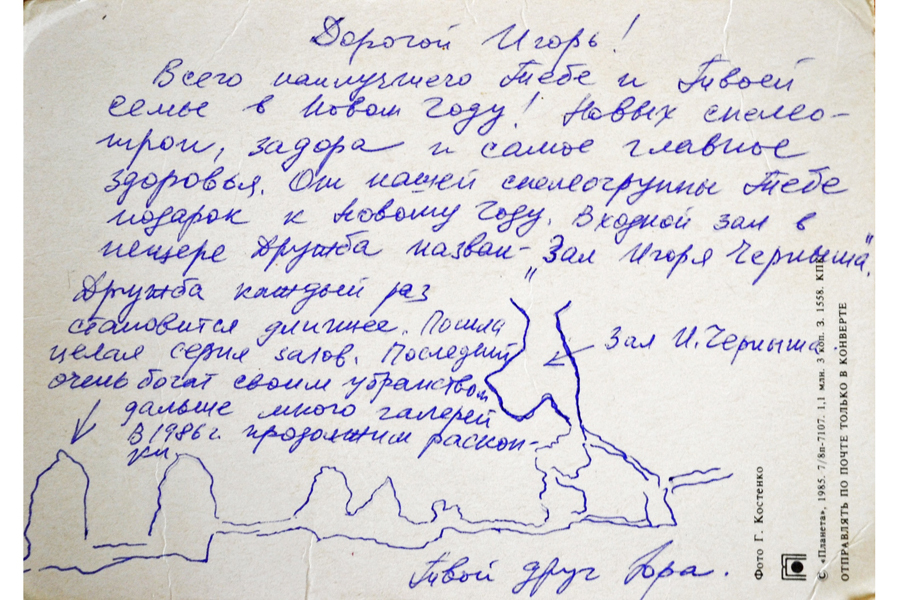 Дорогой Игорь!
Всего наилучшего Тебе и Твоей
семье в Новом Году! Новых спелео-
троп, задора и самое главное
здоровья. От нашей спелеогруппы Тебе
подарок к Новому Году. Входной зал в
пещере Дружба назван - "Зал Игоря Черныша".
Дружба каждый раз
становится длиннее. Пошла
целая серия залов. Последний
очень богат своим убранством
дальше много галерей
В 1986 г. продолжим раскоп-
ки.
Зал И. Черныша
Твой друг Юра.
Фото Г. Костенко
© «Планета», 1985. 7/8п-7107. 1,1 млн. 3 коп. З. 1558. КПК
ОТПРАВЛЯТЬ ПО ПОЧТЕ ТОЛЬКО В КОНВЕРТЕ